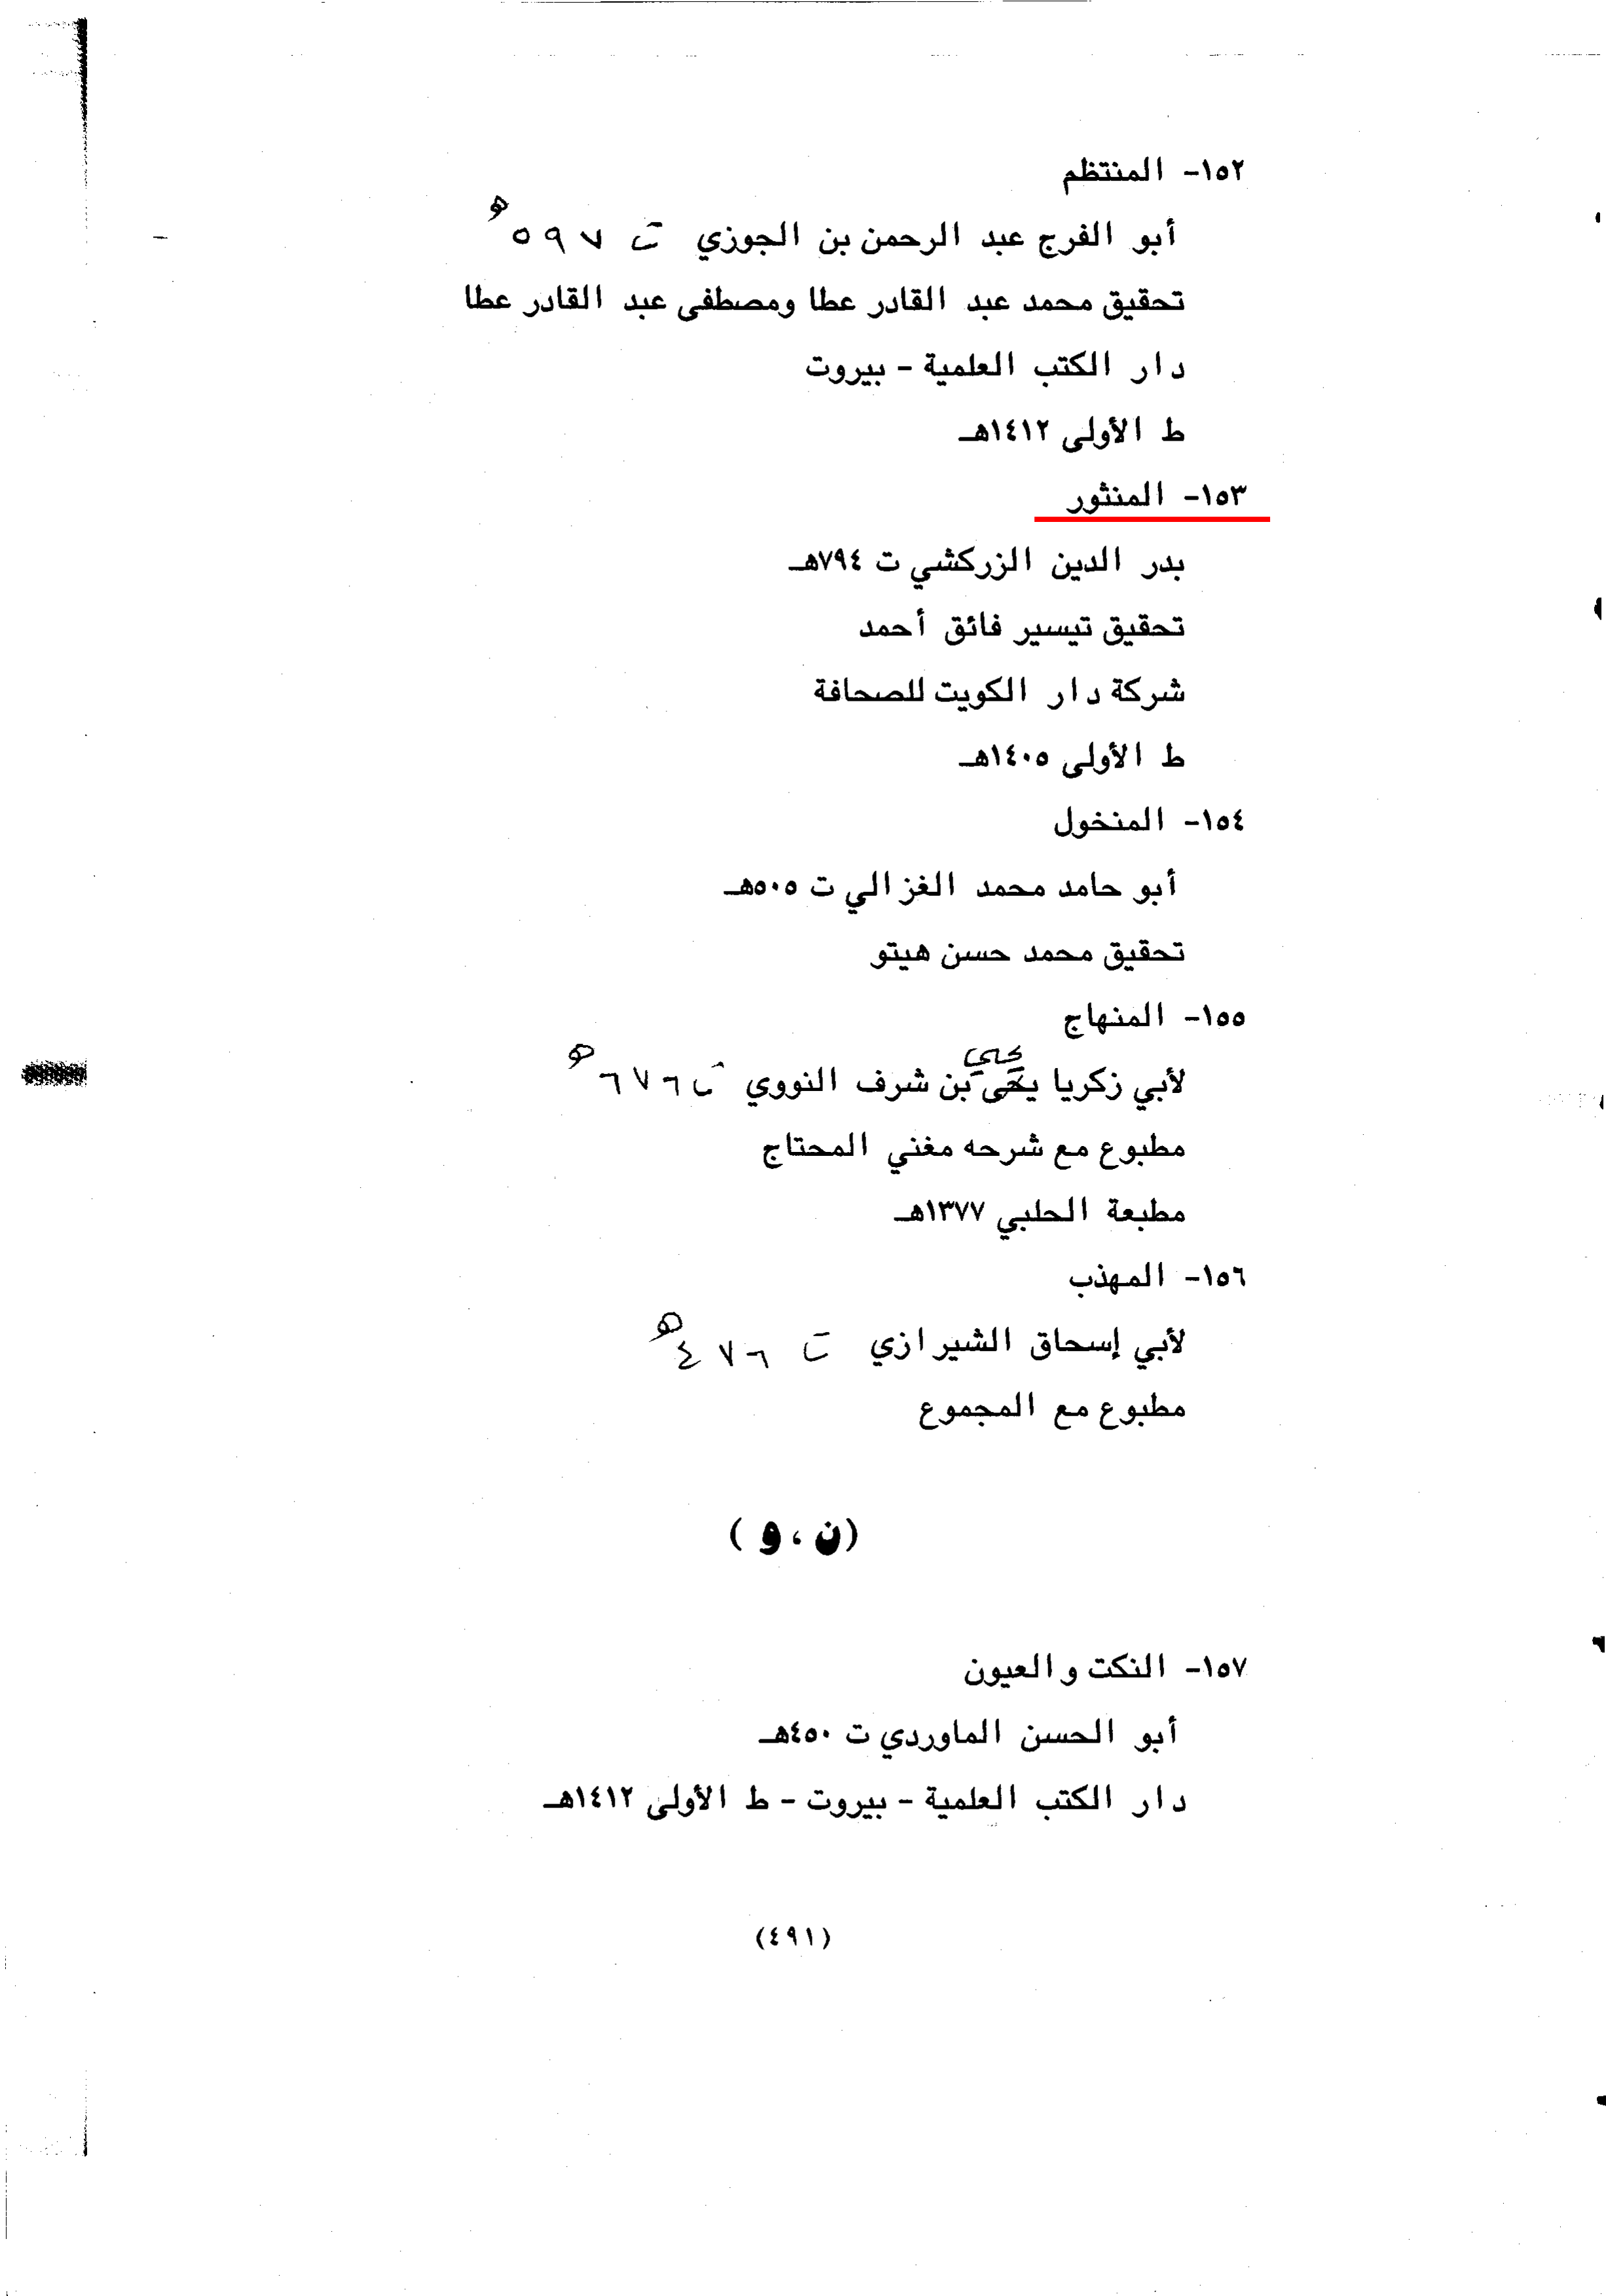 ١٥٢- المنتظم
أبو الفرج عبد الرحمن بن الجوزي ت ٥٩٧ هـ
تحقيق محمد عبد القادر عطا ومصطفى عبد القادر عطا
دار الكتب العلمية - بيروت
ط الأولى ١٤١٢هـ
١٥٣- المنثور
بدر الدين الزركشي ت ٧٩٤هـ
تحقيق تيسير فائق أحمد
شركة دار الكويت للصحافة
ط الأولى ١٤٠٥هـ
١٥٤- المنخول
أبو حامد محمد الغزالي ت ٥٠٥هـ
تحقيق محمد حسن هيتو
١٥٥- المنهاج
يحيى
لأبي زكريا يحى بن شرف النووي ت ٦٧٦ هـ
مطبوع مع شرحه مغني المحتاج
مطبعة الحلبي ١٣٧٧هـ
١٥٦- المهذب
لأبي إسحاق الشيرازي ت ٤٧٦ هـ
مطبوع مع المجموع
(ن ، و )
١٥٧- النكت والعيون
أبو الحسن الماوردي ت ٤٥٠هـ
دار الكتب العلمية - بيروت - ط الأولى ١٤١٢هـ
(٤٩١)